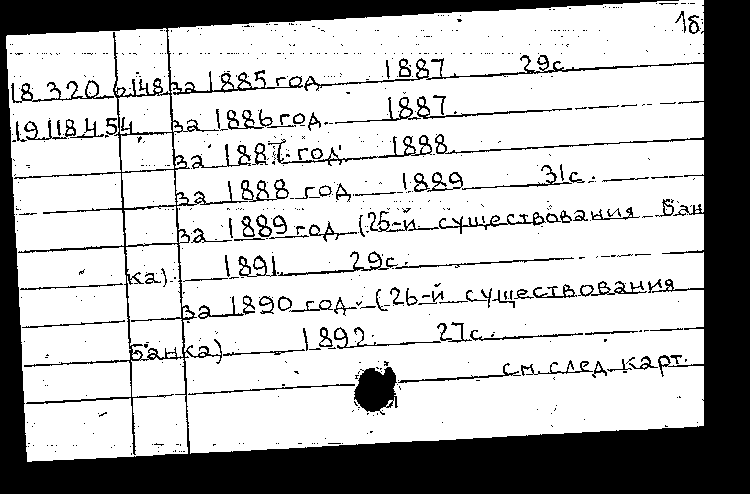 1б.
18.320.6.148 за 1885 год. 1887. 29с.
19.118.4.54 за 1886 год. 1887.
за 1887 год. 1888.
за 1888 год 1889 31с.
за 1889 год (25-й существования Бан
ка). 1891. 29с.
за 1890 год. (26-й существования
Банка) 1892. 27с.
см. след. карт.